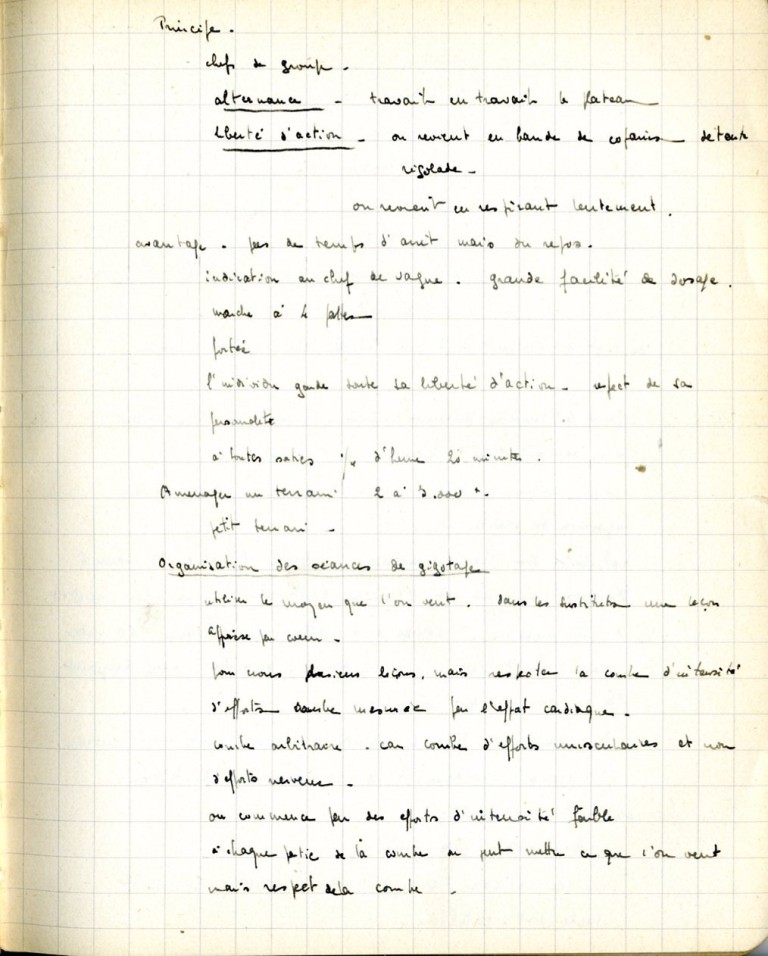 Principe.
chefs de groupe.
alternance - travail en travail le plateau
liberté d'action - on revient en bande de copains détente
rigolade -
on revient en respirant lentement.
avantage. pas de temps d'arrêt mais du repos.
indication au chef de vague. grande facilité de dosage.
marche à 4 pattes
portée
l'individu garde toute sa liberté d'action - respect de sa
personnalité
à toutes d'heure 20 minutes.
Aménager un terrain 2 à 3.000
petit terrain -
Organisation des séances de gigotage
utiliser le moyen que l'on veut. dans les Instituts une leçon
apprise par coeur -
pour nous plusieurs leçons, mais respecter la courbe d'intensité
d'efforts courbe mesurée par l'effet cardiaque.
courbe arbitraire. car courbe d'efforts musculaires et non
d'efforts nerveux -
on commence par des efforts d'intensité faible
à chaque partie de la courbe on peut mettre ce que l'on veut
mais respect de la courbe .